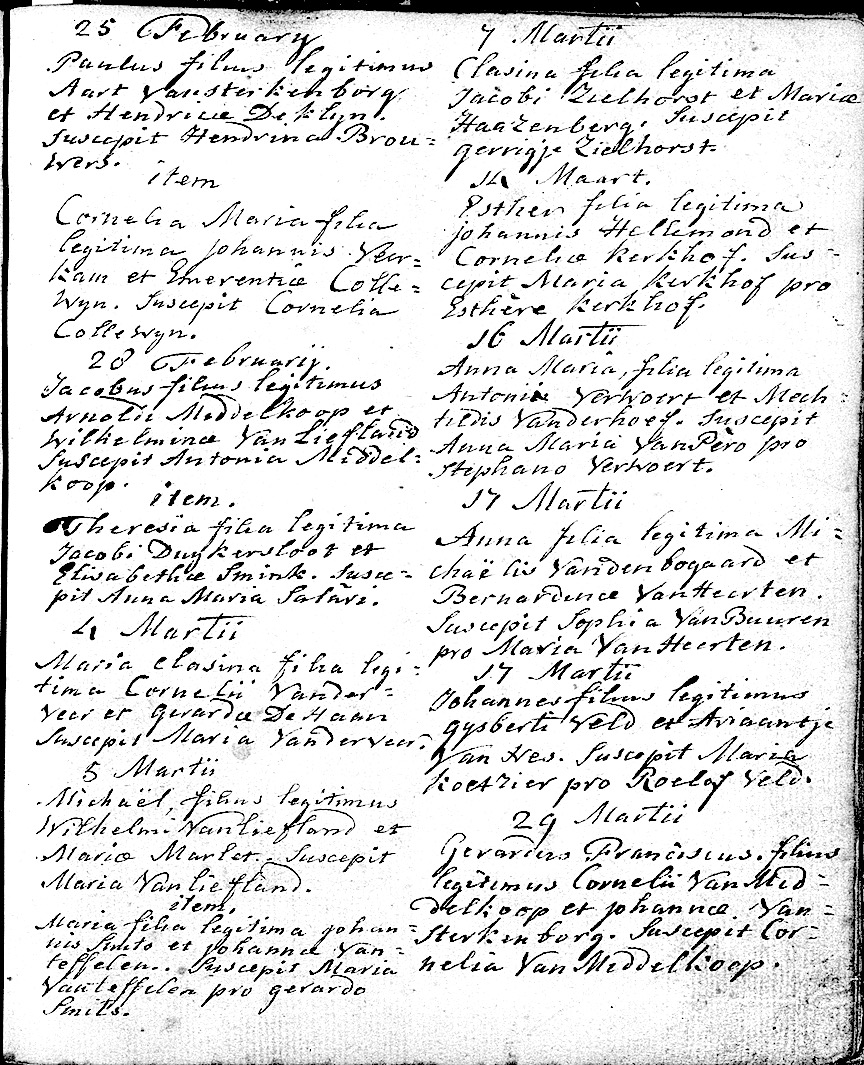 25 February
Paulus filius legitimus
Aart Vansterkenborg
et Hendricæ De Klyn.
Suscepit Hendrina Brou=
wers.
item
Cornelia Maria filia
legitima Johannis Ver=
kam et Emerentiæ Colle=
wyn. Suscepit Cornelia
Collewyn.
28 Februarij.
Jacobus filius legitimus
Arnoldi Middelkoop et
Wilhelminæ Van Liefland
Suscepit Antonia Middel=
koop.
item.
Theresia filia legitima
Jacobi Duykersloot et
Elisabethæ Smink. Susce=
pit Anna Maria Safari.
4 Martii
Maria Clasina filia legi=
tima Cornelii Vander=
Veer et Gerardæ De Haan
Suscepit Maria Vanderveer.
5 Martii
Michaël, filius legitimus
Wilhelmi Vanliefland et
Mariæ Marlet. Suscepit
Maria Vanliefland.
item.
Maria filia legitima Johan=
nis Smits et Johannæ Van=
teffelen. Suscepit Maria
Vanteffelen pro gerardo
Smits.
7 Martii
Clasina filia legitima
Jacobi Zielhorst et Mariæ
Haazenberg. Suscepit
gerrigje Zielhorst.
14 Maart.
Esther filia legitima
Johannis Hellemond et
Corneliæ Kerkhof. Sus=
cepit Maria Kerkhof pro
Esthère Kerkhof.
16 Martii
Anna Maria, filia legitima
Antonii Verwoert et Mech=
tildis Vanderhoef. Suscepit
Anna Maria VanPero pro
Stephano Verwoert.
17 Martii
Anna filia legitima Mi=
chaëlis Vandenbogaard et
Bernardinæ VanHeerten.
Suscepit Sophia VanBuuren
pro Maria VanHeerten.
17 Martii
Johannes filius legitimus
gysberti Veld et Ariaantje
Van Nes. Suscepit Maria
Koetzier pro Roelof Veld.
29 Martii
Gerardus Franciscus. filius
legitimus Cornelii Van Mid=
delkoop et Johannæ Van=
Sterkenborg. Suscepit Cor=
nelia Van Middelkoop.